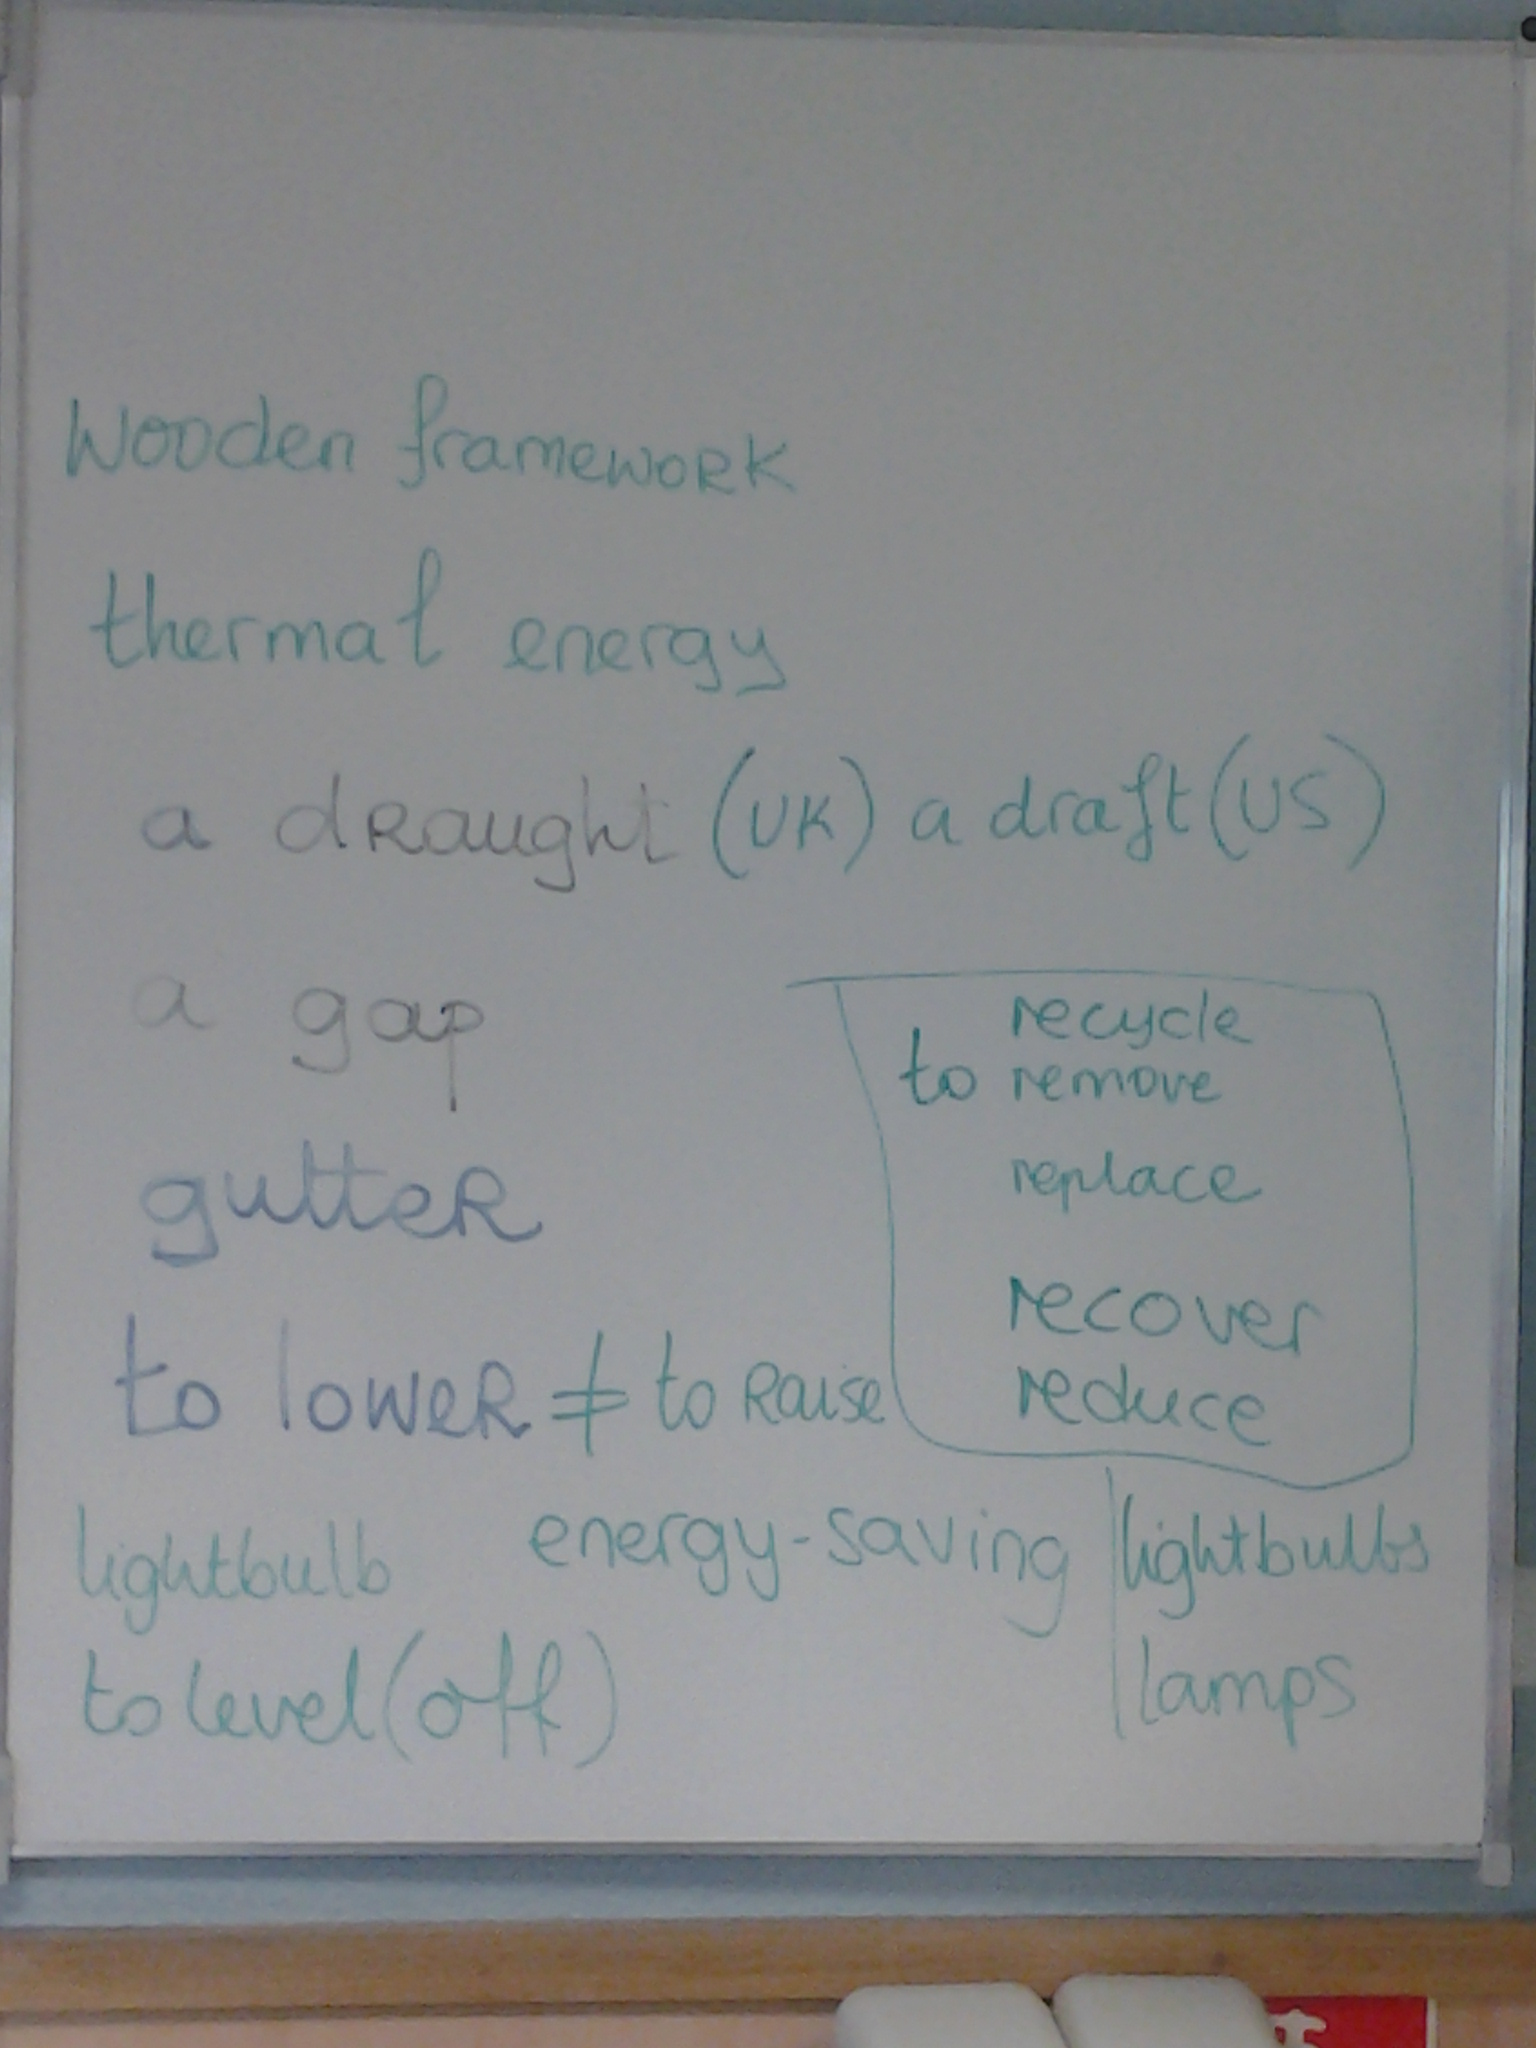 Wooden framework
thermal energy
a draught (UK) a draft (US)
a gap
gutter
to lower ≠ to Raise
recycle
to remove
replace
recover
reduce
lightbulb energy-saving lightbulbs
lamps
to level (off)